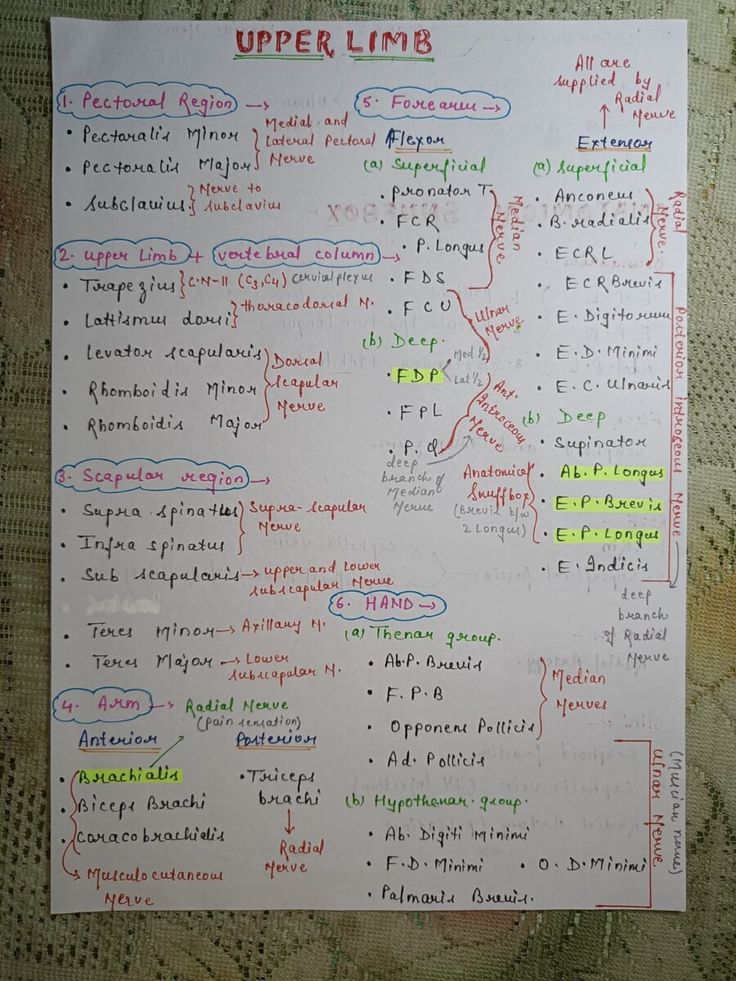 UPPER LIMB
1. Pectoral Region →
• Pectoralis Minor
• Pectoralis Major
Medial and
Lateral Pectoral
Nerve
• Subclavius
Nerve to
subclavius
2. upper Limb + vertebral column →
• Trapezius
C.N-11 (C3,C4) cervical plexus
• Lattismus dorsi
thoracodorsal N.
• Levator scapularis
• Rhomboidis Minor
• Rhomboidis Major
Dorsal
Scapular
Nerve
3. Scapular region →
• Supra spinatus
• Infra spinatus
Supra-scapular
Nerve
• Sub scapularis → upper and Lower
subscapular Nerve
• Teres Minor → Axillary N.
• Teres Major → Lower
subscapular N.
4. Arm → Radial Nerve
(pain sensation)
Anterior
• Brachialis
• Biceps Brachi
• Coracobrachielis
Musculocutaneous
Nerve
Posterior
• Triceps
brachi
↓
Radial
Nerve
5. Forearm →
Flexor
(a) Superficial
• pronator T.
• FCR
• P. Longus
• FDS
Median
Nerve
• FCU
Ulnar
Nerve
(b) Deep.
• FDP
Med 1/2
Lat 1/2
• FPL
• P.Q.
Ant.
Antroceous
Nerve
deep
branch of
Median
Nerve
All are
supplied by
Radial
Nerve
Extensor
(a) Superficial
• Anconeus
• B. radialis
• ECRL
Radial
Nerve
• ECR Brevis
• E. Digitorum
• E. D. Minimi
• E. C. Ulnaris
(b) Deep
• Supinator
• Ab. P. Longus
• E. P. Brevis
• E. P. Longus
• E. Indicis
Anatomical
Snuffbox
(Brevis b/w
2 Longus)
Posterior Introseous Nerve
deep
branch
of Radial
Nerve
6. HAND →
(a) Thenar group.
• Ab.P. Brevis
• F. P. B
• Opponens Pollicis
Median
Nerves
• Ad. Pollicis
(b) Hypothenar group.
• Ab. Digiti Minimi
• F. D. Minimi • O. D. Minimi
• Palmaris Brevis.
Ulnar Nerve
(Musician nerve)